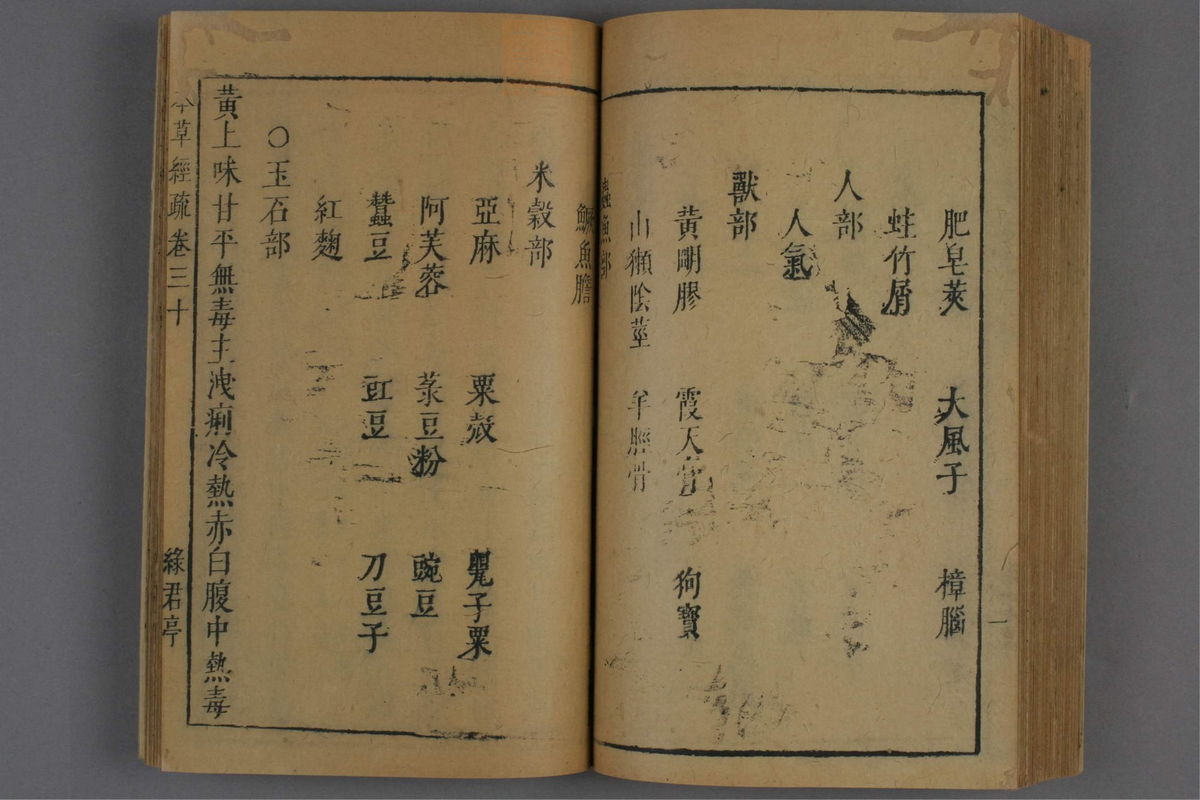 肥皂莢 大風子 樟腦
蛀竹屑
人部
人氣
獸部
黃明膠 霞天膏 狗寶
山獺陰莖 羊脛骨
蟲魚部
鱖魚膽
米穀部
亞麻 粟殻 甖子粟
阿芙蓉 菉豆粉 豌豆
蠶豆 豇豆 刀豆子
紅麴
○玉石部
黃土味甘平無毒主洩痢冷熱赤白腹中熱毒
本草經疏 卷三十 綠君亭